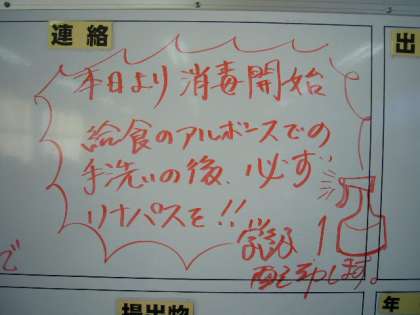 連絡
出
本日より消毒開始
給食のアルボースでの
手洗いの後、必ず
リナパスを!!
学級1
配ります。
で
提出物
年